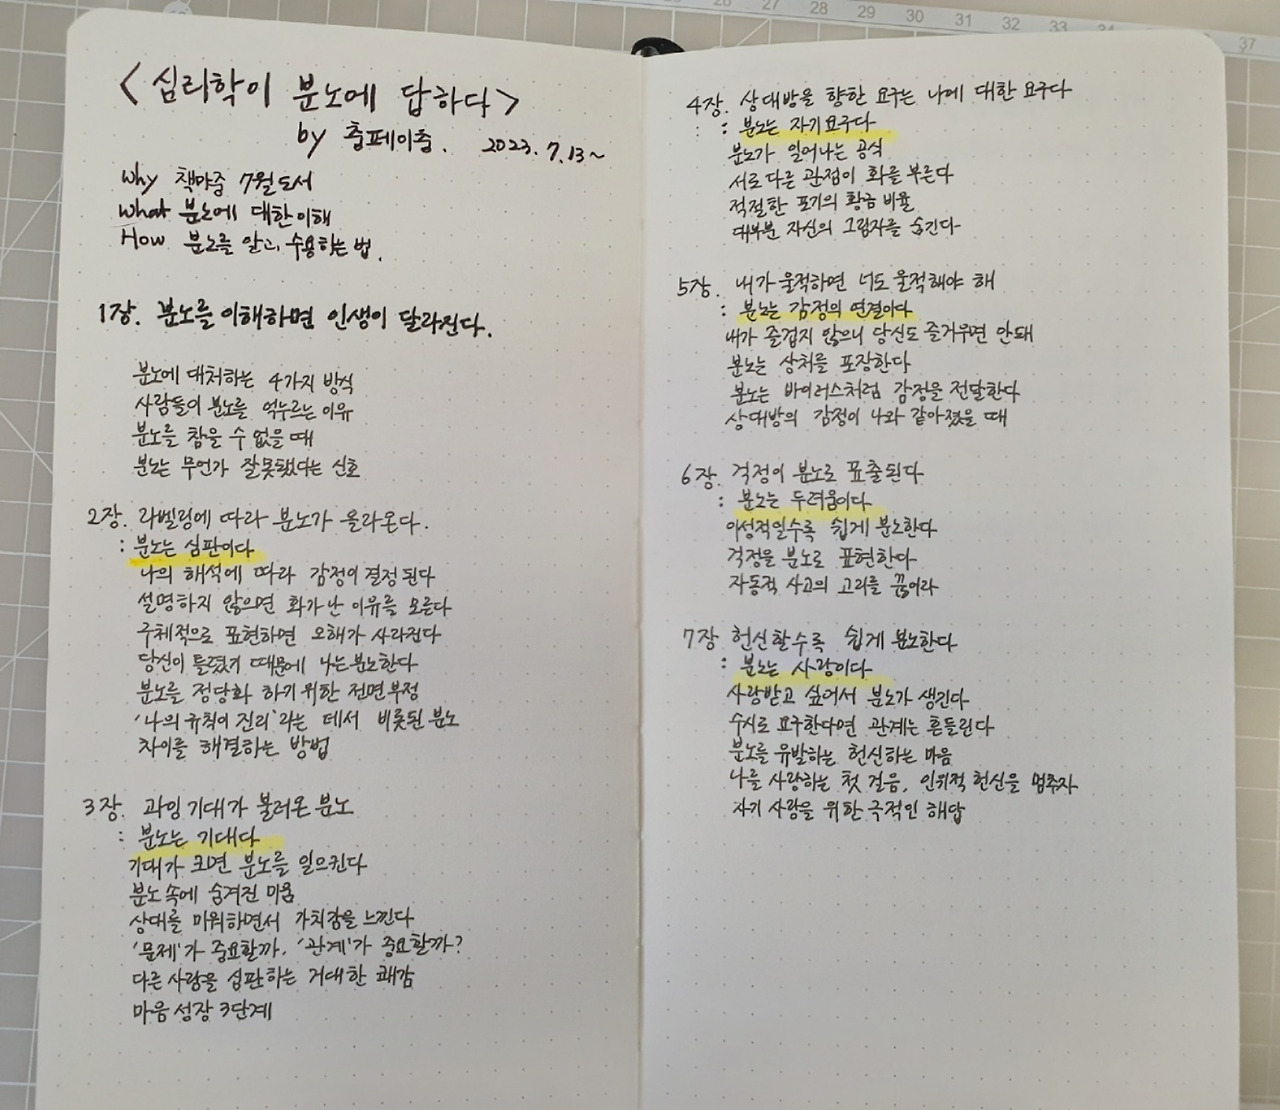 <심리학이 분노에 답하다>
by 충페이충. 2023.7.13~
Why 책마중 7월도서
What 분노에 대한 이해
How 분노를 알고, 수용하는 법.
1장. 분노를 이해하면 인생이 달라진다.
분노에 대처하는 4가지 방식
사람들이 분노를 억누르는 이유
분노를 참을 수 없을 때
분노는 무언가 잘못됐다는 신호
2장. 라벨링에 따라 분노가 올라온다.
: 분노는 심판이다
나의 해석에 따라 감정이 결정된다
설명하지 않으면 화가 난 이유를 모른다
주체적으로 표현하면 오해가 사라진다
당신이 틀렸기 때문에 나는 분노한다
분노를 정당화 하기 위한 전면부정
'나의 규칙이 진리'라는 데서 비롯된 분노
차이를 해결하는 방법
3장. 과잉 기대가 불러온 분노
: 분노는 기대다
기대가 크면 분노를 일으킨다
분노 속에 숨겨진 마음
상대를 미워하면서 가치감을 느낀다
'문제'가 중요할까, '관계'가 중요할까?
다른 사람을 심판하는 거대한 쾌감
마음 성장 3단계
26 27 28 29 30 31 32 33 34 37
4장. 상대방을 향한 요구는 나에 대한 요구다
: 분노는 자기요구다
분노가 일어나는 공식
서로 다른 관점이 화를 부른다
적절한 포기의 황금 비율
대부분 자신의 그림자를 숨긴다
5장. 내가 울적하면 너도 울적해야 해
: 분노는 감정의 연결이다
내가 즐겁지 않으니 당신도 즐거우면 안돼
분노는 상처를 포장한다
분노는 바이러스처럼 감정을 전달한다
상대방의 감정이 나와 같아졌을 때
6장. 걱정이 분노로 표출된다
: 분노는 두려움이다
이성적일수록 쉽게 분노한다
걱정을 분노로 표현한다
자동적 사고의 고리를 끊어라
7장 헌신할수록 쉽게 분노한다
: 분노는 사랑이다
사랑받고 싶어서 분노가 생긴다
수시로 요구한다면 관계는 흔들린다
분노를 유발하는 헌신하는 마음
나를 사랑하는 첫 걸음, 인위적 헌신을 멈추자
자기 사랑을 위한 극적인 해답